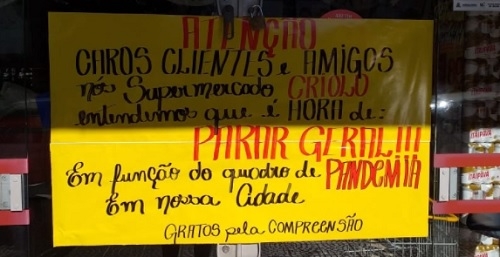 ATENÇÃO
CAROS CLIENTES e AMIGOS
nós Supermercado CRIOLO
entendemos que é HORA de:
PARAR GERAL!!!
Em função do quadro de PANDEMIA
Em nossa Cidade
GRATOS pela COMPREENSÃO